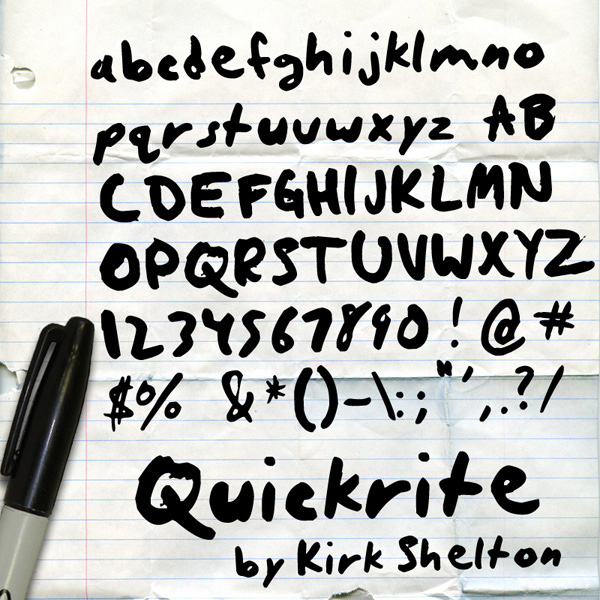 abcdefghijklmno
pqrstuvwxyz AB
CDEFGHIJKLMN
OPQRSTUVWXYZ
1234567890!@#
$% &*()-\:;"',.?/
Quickrite
by Kirk Shelton